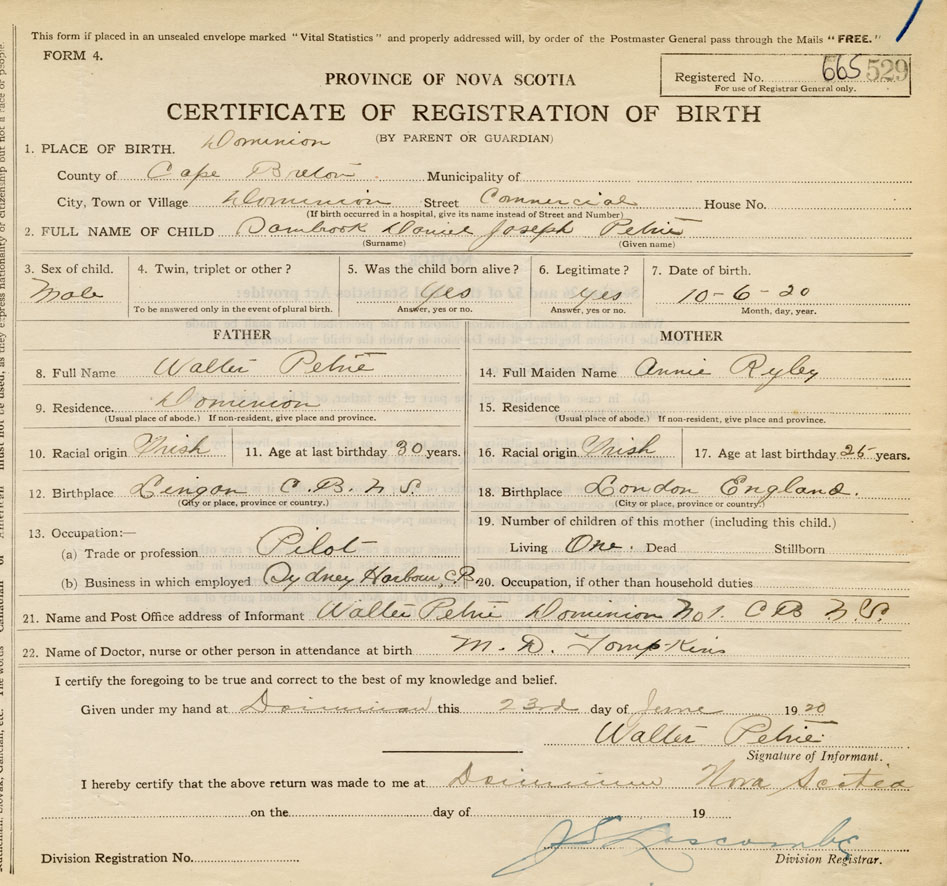 This form if placed in an unsealed envelope marked "Vital Statistics" and properly addressed will, by order of the Postmaster General pass through the Mails "FREE."
FORM 4.
PROVINCE OF NOVA SCOTIA
Registered No. 665 529
For use of Registrar General only.
CERTIFICATE OF REGISTRATION OF BIRTH
(BY PARENT OR GUARDIAN)
1. PLACE OF BIRTH. Dominion
County of Cape Breton Municipality of
City, Town or Village Dominion Street Commercial House No.
(If birth occurred in a hospital, give its name instead of Street and Number)
2. FULL NAME OF CHILD Daniel Joseph Petrie
(Surname) (Given name)
3. Sex of child. 4. Twin, triplet or other? 5. Was the child born alive? 6. Legitimate? 7. Date of birth.
Male Yes Yes 10-6-20
To be answered only in the event of plural birth. Answer, yes or no. Answer, yes or no. Month, day, year.
FATHER MOTHER
8. Full Name Walter Petrie 14. Full Maiden Name Annie Ryley
9. Residence Dominion 15. Residence
(Usual place of abode.) If non-resident, give place and province. (Usual place of abode.) If non-resident, give place and province.
10. Racial origin Irish 11. Age at last birthday 30 years. 16. Racial origin Irish 17. Age at last birthday 25 years.
12. Birthplace Lingan C.B. N.S. 18. Birthplace London England.
(City or place, province or country.) (City or place, province or country.)
13. Occupation:— 19. Number of children of this mother (including this child.)
(a) Trade or profession Pilot Living One. Dead Stillborn
(b) Business in which employed Sydney Harbour, C.B. 20. Occupation, if other than household duties
21. Name and Post Office address of Informant Walter Petrie Dominion No 1. C B N.S.
22. Name of Doctor, nurse or other person in attendance at birth M. D. Tompkins
I certify the foregoing to be true and correct to the best of my knowledge and belief.
Given under my hand at Dominion this 23rd day of June 1920
Walter Petrie
Signature of Informant.
I hereby certify that the above return was made to me at Dominion Nova Scotia
on the day of 19
Division Registration No. Division Registrar.